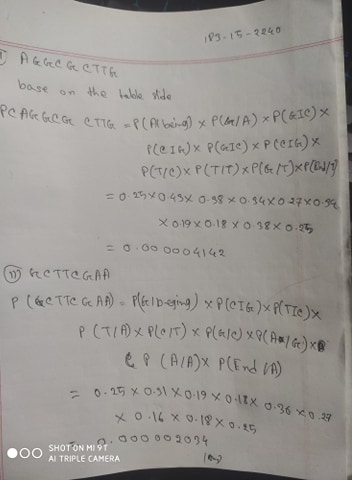 183-15-2240
I AGGCGCTTG
base on the table slide
P(AGGCGC CTTG = P(A|being) × P(G/A) × P(G|C) ×
P(C|G) × P(G|C) × P(C|G) ×
P(T/C) × P(T/T) × P(G/T) × P(End/T)
= 0.25 × 0.43 × 0.38 × 0.34 × 0.27 × 0.34
× 0.19 × 0.18 × 0.38 × 0.25
= 0.000004142
II GCTTCGAA
P (GCTTCGAA) = P(G/beging) × P(C|G) × P(T|C) ×
P (T/A) × P(C/T) × P(G/C) × P(A/G) ×
P (A/A) × P(End/A)
= 0.25 × 0.31 × 0.19 × 0.18 × 0.36 × 0.27
× 0.16 × 0.18 × 0.25
= 0.000002034
SHOT ON MI 9T
AI TRIPLE CAMERA